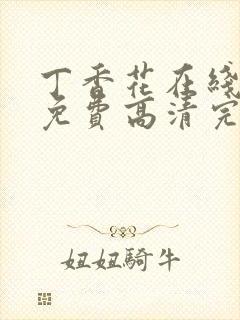 丁香花在綫
免費高清完
妞妞騎牛